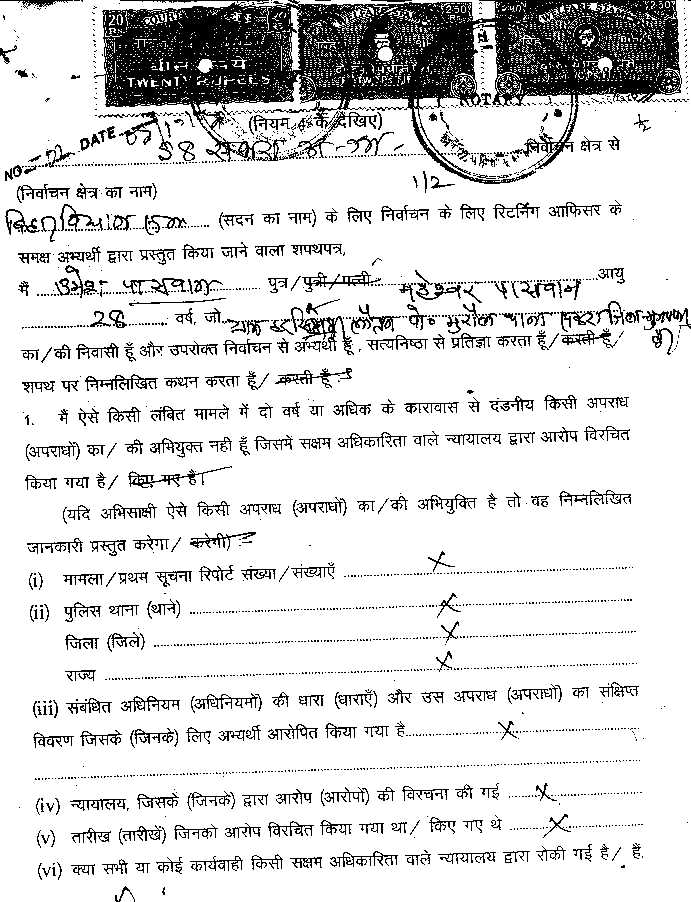 20 COURT
WELFARE STAMP 2.50
WELFARE STAMP 2.50
बीस रुपये
TWENTY RUPEES
NOTARY
NO- 22 DATE
(नियम 4 क देखिए)
निर्वाचन क्षेत्र से
58 सकरा
1/2
(निर्वाचन क्षेत्र का नाम)
बिहार विधान सभा (सदन का नाम) के लिए निर्वाचन के लिए रिटर्निंग आफिसर के
समक्ष अभ्यर्थी द्वारा प्रस्तुत किया जाने वाला शपथपत्र,
मैं उमेश पासवान पुत्र/पुत्री/पत्नी महेश्वर पासवान आयु
28 वर्ष, जो पो० मुरौल थाना सकरा जिला
का/की निवासी हूँ और उपरोक्त निर्वाचन से अभ्यर्थी हूँ, सत्यनिष्ठा से प्रतिज्ञा करता हूँ/ करती हूँ/
शपथ पर निम्नलिखित कथन करता हूँ/ करती हूँ :
1. मैं ऐसे किसी लंबित मामले में दो वर्ष या अधिक के कारावास से दंडनीय किसी अपराध
(अपराधों) का/ की अभियुक्त नही हूँ जिसमें सक्षम अधिकारिता वाले न्यायालय द्वारा आरोप विरचित
किया गया है/ किए गए है।
(यदि अभिसाक्षी ऐसे किसी अपराध (अपराधों) का/की अभियुक्ति है तो वह निम्नलिखित
जानकारी प्रस्तुत करेगा/ करेगी) :-
(i) मामला/प्रथम सूचना रिपोर्ट संख्या/संख्याएँ X
(ii) पुलिस थाना (थाने) X
जिला (जिले) X
राज्य X
(iii) संबंधित अधिनियम (अधिनियमों) की धारा (धाराएँ) और उस अपराध (अपराधों) का संक्षिप्त
विवरण जिसके (जिनके) लिए अभ्यर्थी आरोपित किया गया है X
(iv) न्यायालय, जिसके (जिनके) द्वारा आरोप (आरोपों) की विरचना की गई X
(v) तारीख (तारीखें) जिनको आरोप विरचित किया गया था/ किए गए थे X
(vi) क्या सभी या कोई कार्यवाही किसी सक्षम अधिकारिता वाले न्यायालय द्वारा रोकी गई है/ हैं.